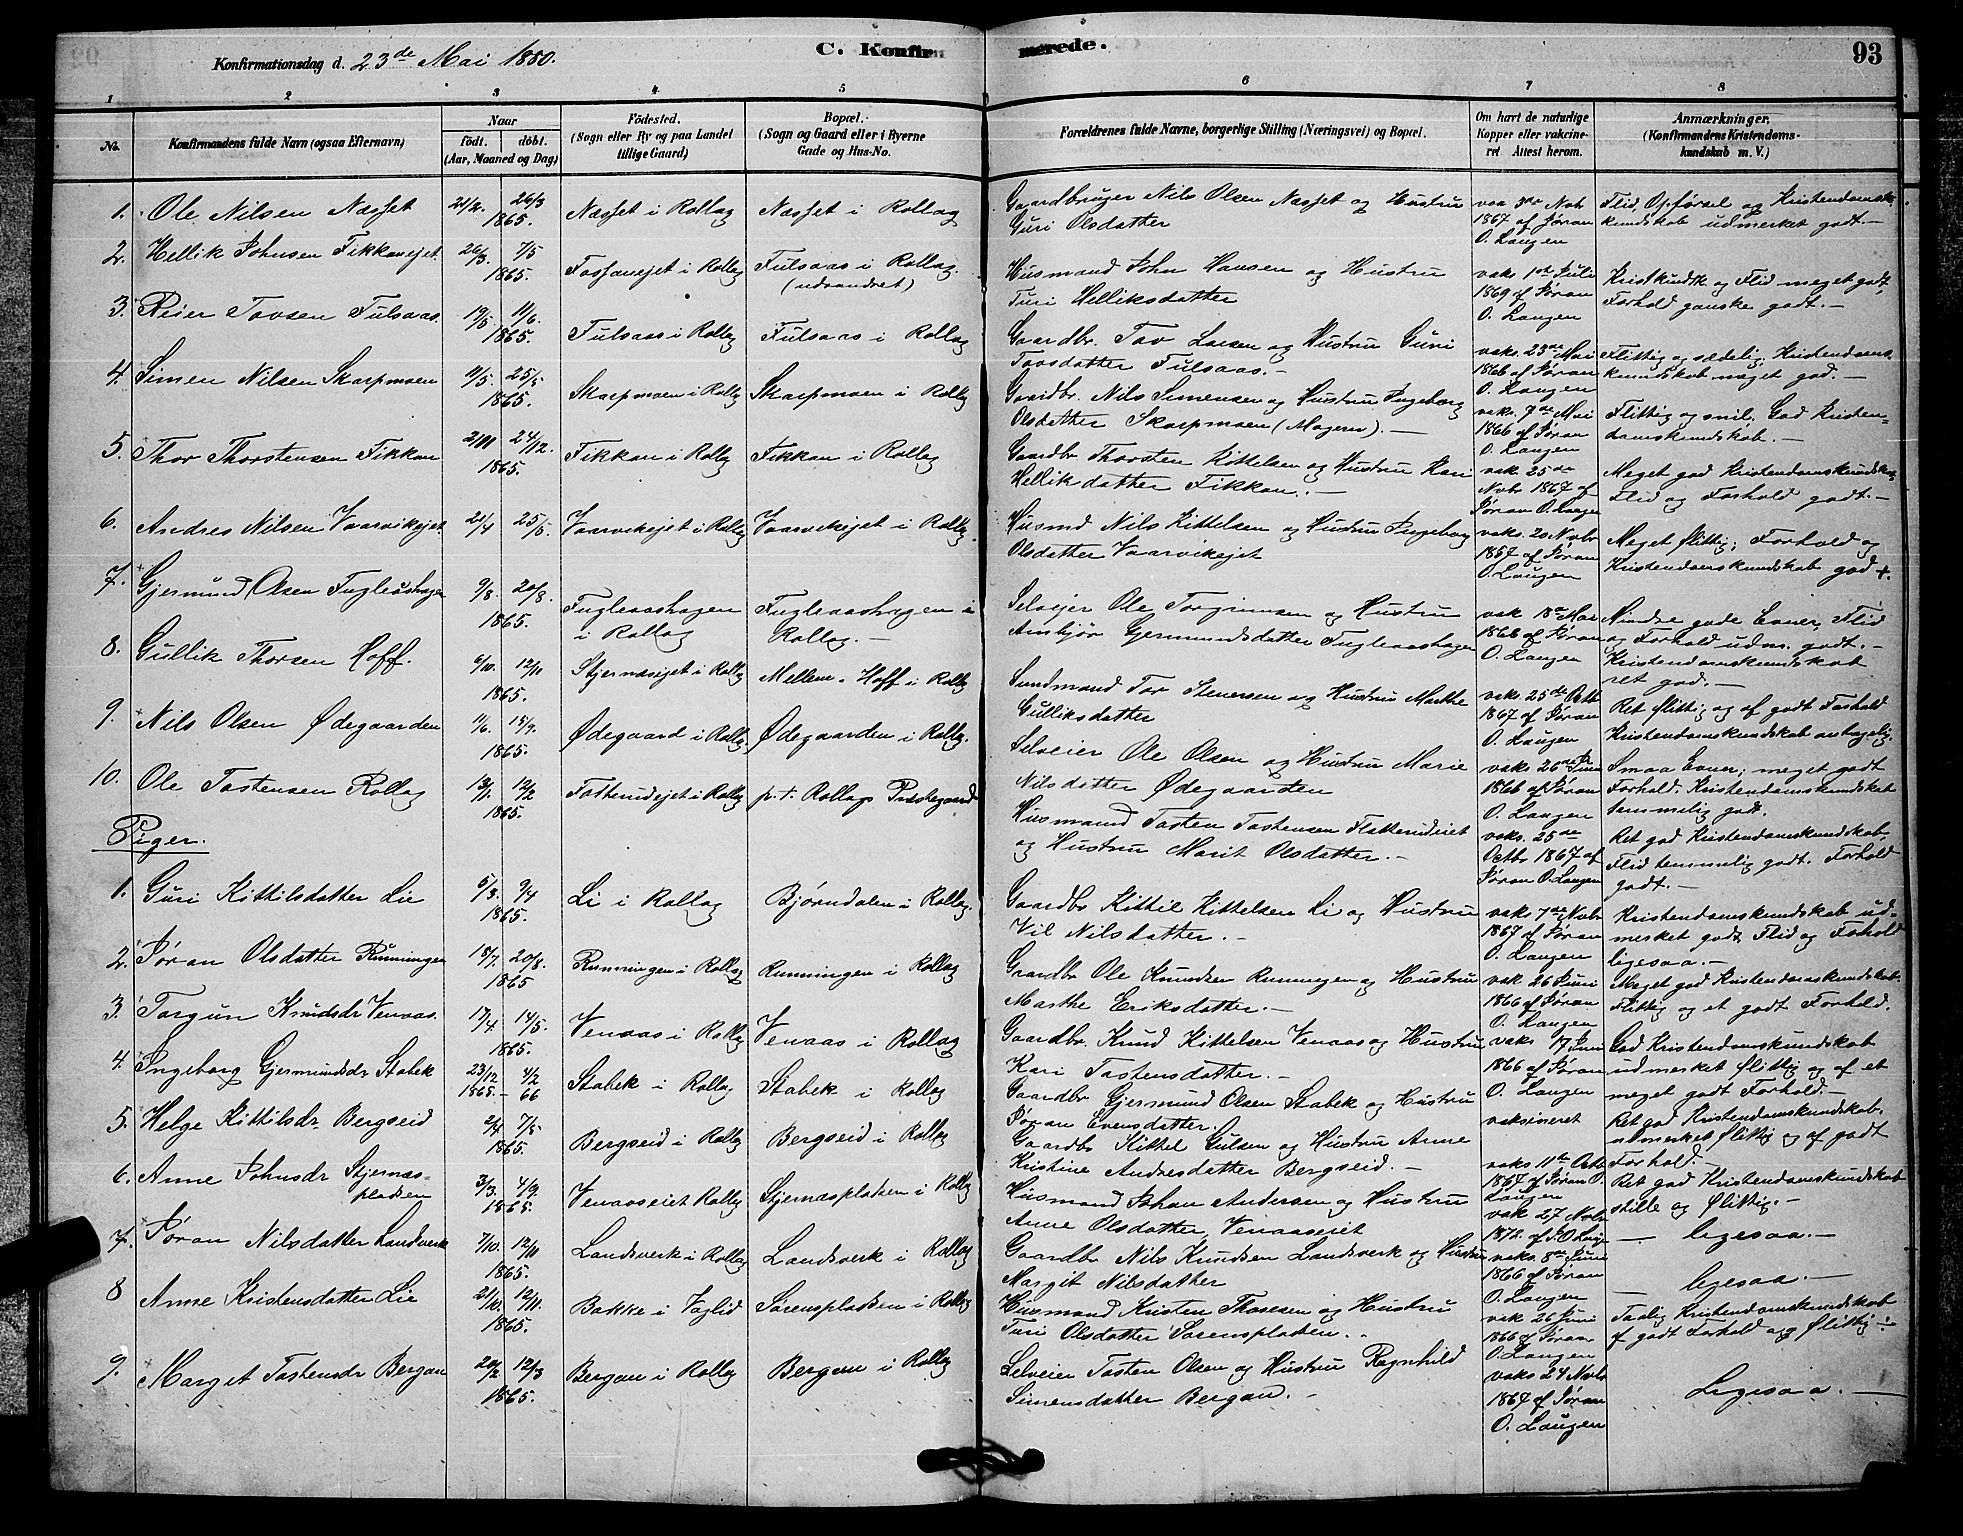 Konfirmationsdag d. 23de Mai 1880.
C. Konfirmerede.
93
1 2 3 4 5 6 7 8
No.
Konfirmandens fulde Navn (ogsaa Efternavn)
Naar
födt. döbt.
(Aar, Maaned og Dag)
Födested.
(Sogn eller By og paa Landet
tillige Gaard)
Bopæl.
(Sogn og Gaard eller i Byerne
Gade og Hus-No.
Forældrenes fulde Navne, borgerlige Stilling (Næringsvei) og Bopæl.
Om havt de naturlige
Kopper eller vakcine-
ret Attest herom.
Anmærkninger,
(Konfirmandens Kristendoms-
kundskab m. V.)
1. Ole Nilsen Næsset 21/2. 26/3 1865. Næsset i Rollag Næsset i Rollag
Gaardbruger Nils Olsen Næsset og Hustru
Guri Olsdatter
1867 af Jøran
O. Laugen
Flid, Opførsel og Kristendoms-
kundskab udmerket godt.-
2. Hellik Johnsen Fikkanejet 26/3. 7/5 1865. i Rollag Fulsaas i Rollag.
(udvandret)
Husmand John Hansen og Hustru
Turi Helliksdatter
vaks 1st Juli
1869 af Jøran
O. Laugen
Kristkundsk og Flid meget godt,
Forhold ganske godt.-
3. Reier Tovsen Fulsaas. 19/5 11/6. 1865. Fulsaas i Rollag Fulsaas i Rollag
Gaardbr. Tov Larsen og Hustru Guri
Tovsdatter Fulsaas.-
vaks. 23de Mai
1866 af Jøran
O. Laugen
Flittig og sædelig, Kristendoms-
kundskab meget god.-
4. Simen Nilsen Skarpmoen 11/5. 25/5 1865. Skarpmoen i Rollag Skarpmoen i Rollag
Gaardbr. Nils Simensen og Hustru Ingeborg
Olsdatter Skarpmoen (Mogeren).-
vaks. 7de Mai
1866 af Jøran
O. Laugen
Flittig og snil. God Kristen-
domskundskab.-
5. Thor Thorstensen Fikkan 2/11 24/12. 1865. Fikkan i Rollag Fikkan i Rollag
Gaardbr Thorsten Kittelsen og Hustru Kari
Helliksdatter Fikkan.-
vak 25de
Novbr 1867 af
Jøran O. Laugen
Meget god Kristendomskundskab,
Flid og Forhold godt.-
6. Andres Nilsen Vaarvikejet. 21/4 25/5. Vaarvikejet i Rollag Vaarvikejet i Rollag.
Husmd Nils Kittelsen og Hustru Ingeborg
Olsdatter Vaarvikejet
vaks. 20 Novbr
1867 af Jøran
O. Laugen
Meget flittig; Forhold og
Kristendomskundskab god +.
7. Gjermund Olsen Fugleaashagen 9/8. 20/8. 1865. Fugleaashagen
i Rollag
Fugleaashagen i
Rollag.-
Selvejer Ole Torgrimsen og Hustru
Ambjør Gjermundsdatter Fugleaashagen
vak 18de Mai
1866 af Jøran
O. Laugen
Mindre gode Evner, Flid
og Forhold udm. godt.-
Kristendomskundskab
ret god.-
8. Gullik Thorsen Hoff. 6/10. 12/11 1865. Stjernesejet i Rollag Mellem-Hoff i Rollag
Sundmand Tor Stenersen og Hustru Marthe
Gulliksdatter
vaks. 25de Octbr
1867 af Jøran
O. Laugen
Ret flittig og af godt Forhold
Kristendomskundskab antagelig.
9. Nils Olsen Ødegaarden 11/6. 15/7. 1865. Ødegaard i Rollag, Ødegaarden i Rollag.
Selveier Ole Olsen og Hustru Marie
Nilsdatter Ødegaarden
vaks 26de Juni
1866 af Jøran
O. Laugen
Smaa Evner; meget godt
Forhold. Kristendomskundskab
temmelig god.
10. Ole Tostensen Rollag 13/1. 12/2 1865. i Rollag p.t. Rollags Prestegaard
Husmand Tosten Tostensen
og Hustru Marit Olsdatter.-
vaks. 25de
Octbr 1867 af
Jøran O. Laugen
Ret god Kristendomskundskab,
Flid temmelig godt. Forhold
godt.-
Piger.
1. Guri Kittilsdatter Lie 5/3. 9/4 1865. Li i Rollag Bjørndalen i Rollag.
Gaardbr Kittil Kittelsen Li og Hustru
Vil Nilsdatter.-
vaks 7de Novbr
1867 af Jøran
O. Laugen
Kristendomskundskab ud-
merket godt, Flid og Forhold
ligesaa.-
2. Jøran Olsdatter Runningen 18/7. 20/8. 1865 Runningen i Rollag Runningen i Rollag
Gaardbr Ole Knudsen Runningen og Hustru
Marthe Eriksdatter.-
vak 26 Juni
1866 af Jøran
O. Laugen
Meget god Kristendomskundskab.
Flittig og et godt Forhold.
3. Torgun Knudsdr Venaas. 17/4 14/5. 1865. Venaas i Rollag Venaas i Rollag
Gaardbr. Knud Kittelsen Venaas og Hustru
Kari Tostensdatter.-
vaks Juni
1866 af Jøran
O. Laugen
God Kristendomskundskab
udmerket flittig og af et
meget godt Forhold.-
4. Ingeborg Gjermundsdr Stabek 23/12 1865.- 4/2 66 Stabek i Rollag Stabek i Rollag
Gaardbr Gjermund Olsen Stabek og Hustru
Jøran Evensdatter.
vaksineret
Ret god Kristendomskundskab.
udmerket flittig og af godt
Forhold.-
5. Helge Kittilsdr Bergseid 2/4 7/5 1865. Bergseid i Rollag Bergseid i Rollag
Gaardbr Kittel Gulsen og Hustru Anne
Kristine Andresdatter Bergseid.-
vaks 11te Octb
1867 af Jøran O.
Laugen
Ret god Kristendomskundskab
stille og flittig.-
6. Anne Johnsdr Stjernes-
pladsen 3/3. 4/9. 1865. Venaaseiet Rollag Stjernespladsen i Rollag
Husmand Johan Andersen og Hustru
Anne Olsdatter, Venaasejet
vak 27 Novbr
1872
- ligesaa.-
7. Jøran Nilsdatter Landsverk 7/10. 12/11 1865. Landsverk i Rollag Landsverk i Rollag
Gaardbr Nils Knudsen Landsverk og Hustru
Margit Nilsdatter
vaks. 8de Juni
1866 af Jøran
O. Laugen
- ligesaa.-
8 Anne Kristensdatter Lie 21/10. 12/11. 1865. Bakke i Vaglid Sorenspladsen i Rollag
Husmand Kristen Thosesen og Hustru
Turi Olsdatter Sorenspladsen.
vak 26 Juni
1866 af Jøran
O. Laugen
Taalig Kristendomskundskab
af godt Forhold og flittig.-
9. Marget Tostensdr Bergan 20/2 12/3 1865. Bergan i Rollag Bergan i Rollag
Selveier Tosten Olsen og Hustru Ragnhild
Simensdatter Bergan.-
vaks 24 Novbr
1867 af Jøran
O. Laugen
Ligesaa.-